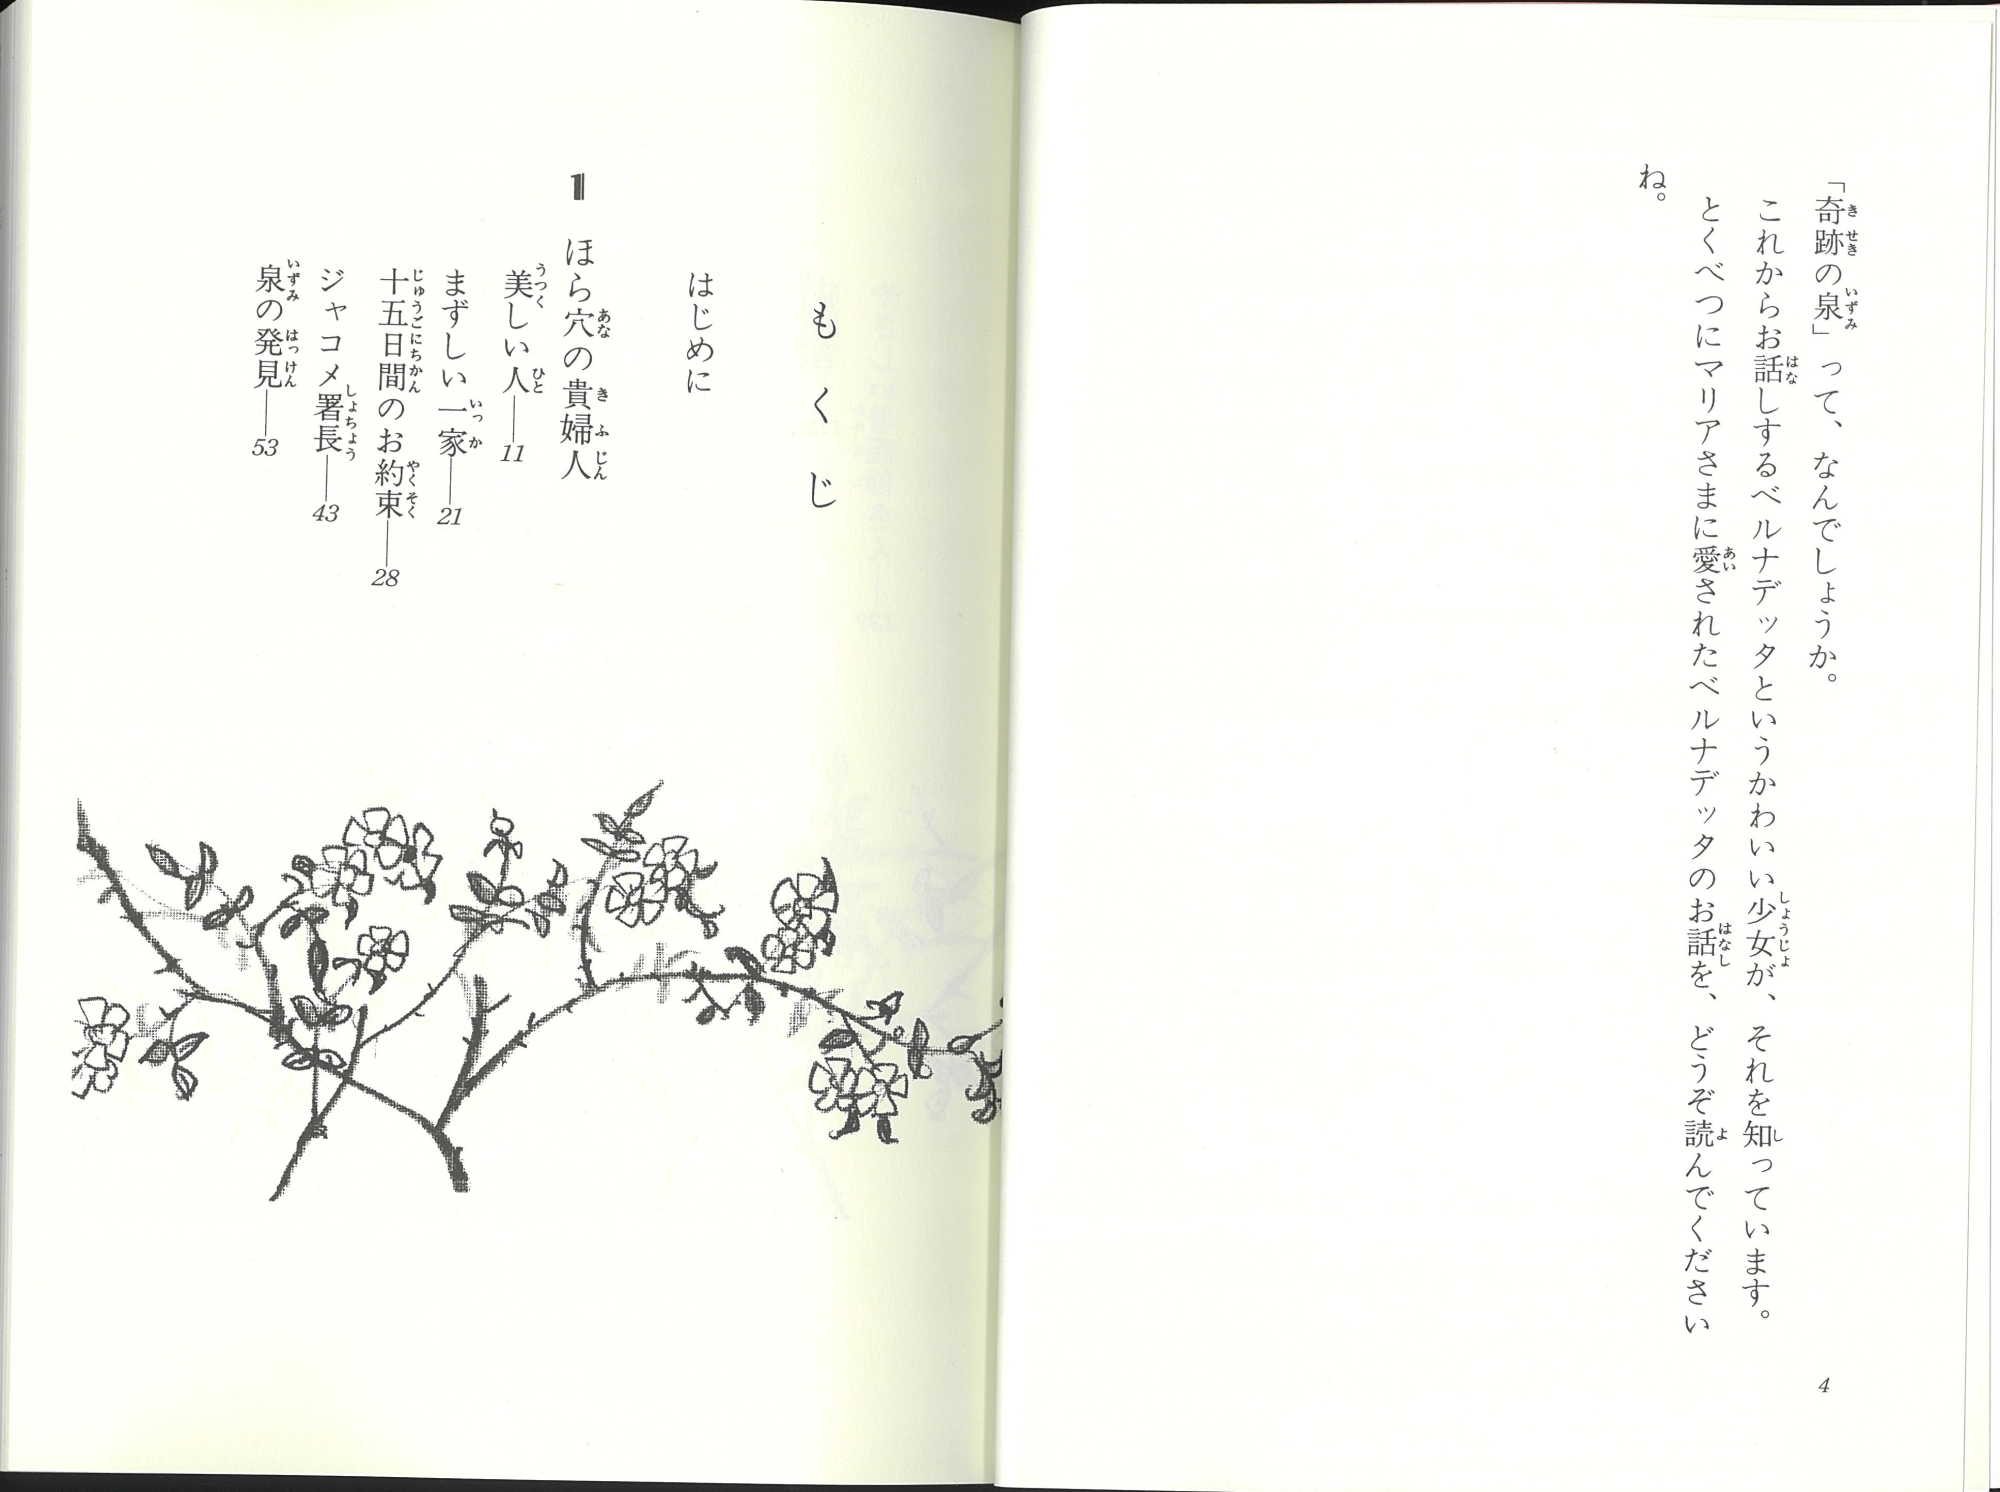 「奇跡の泉」って、なんでしょうか。
これからお話しするベルナデッタというかわいい少女が、それを知っています。
とくべつにマリアさまに愛されたベルナデッタのお話を、どうぞ読んでください
ね。
4
もくじ
はじめに
1 ほら穴の貴婦人
美しい人——11
まずしい一家——21
十五日間のお約束——28
ジャコメ署長——43
泉の発見——53